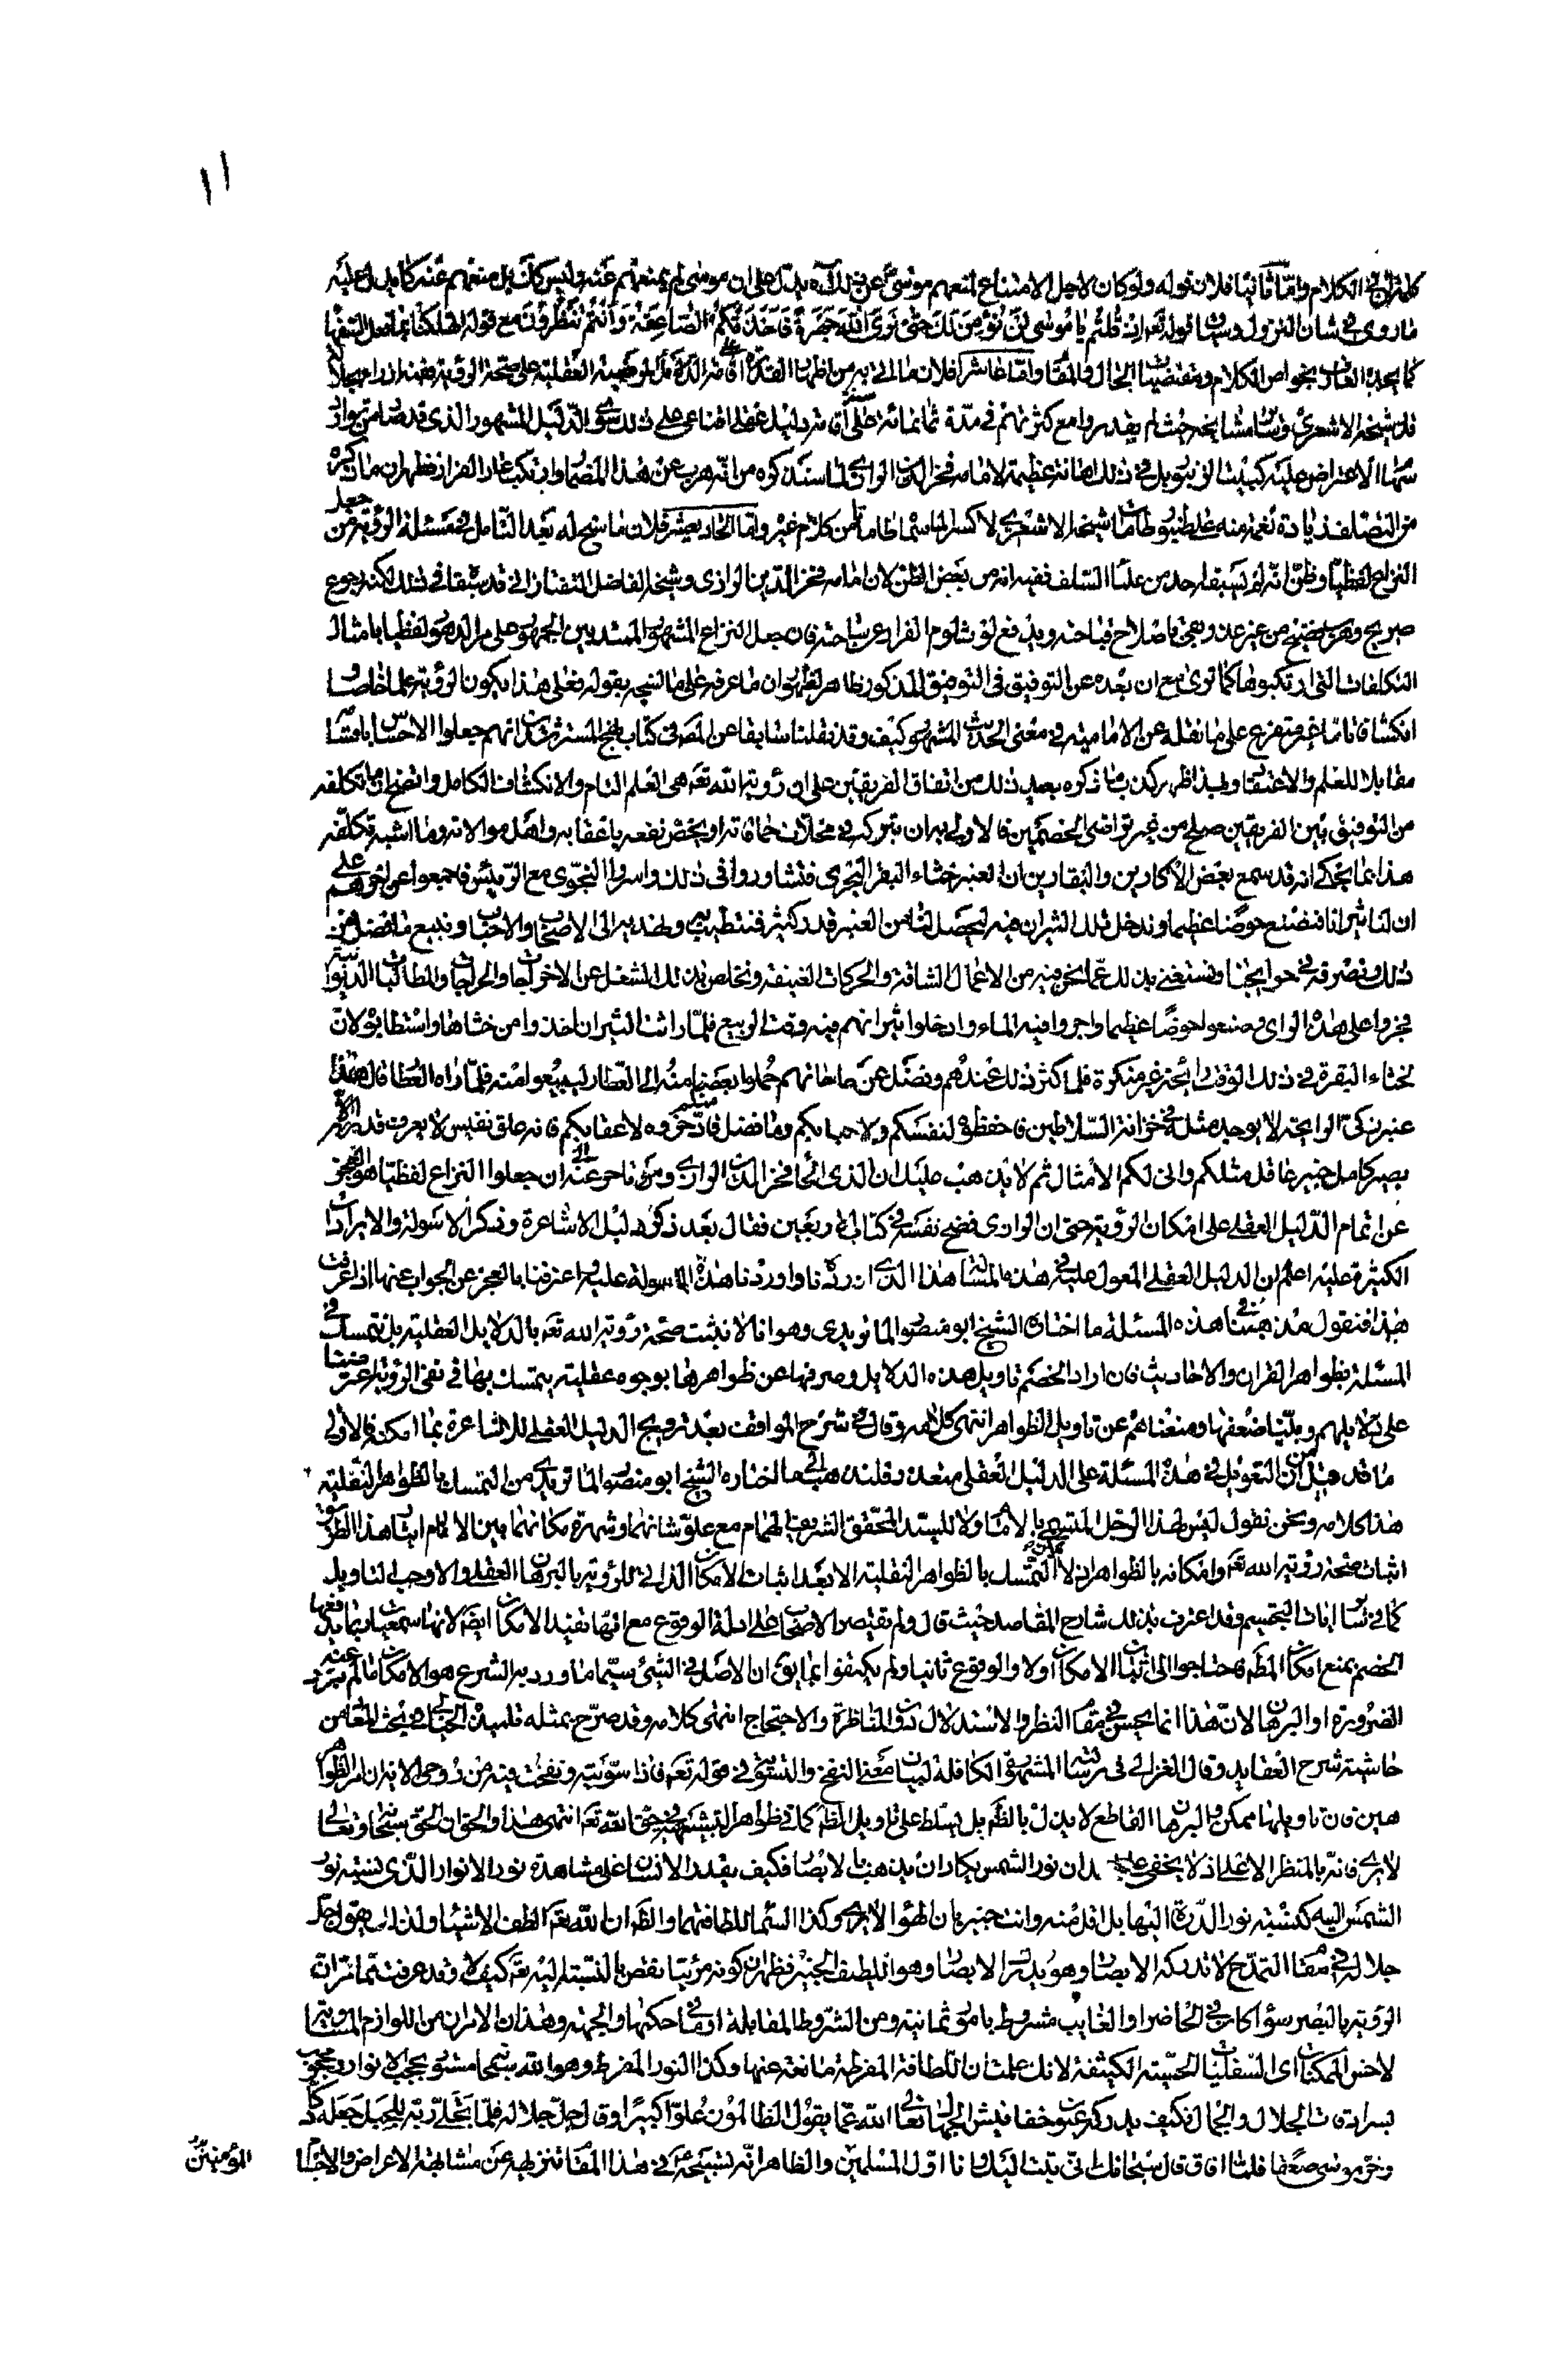 ١١
الكلام واما ثانيا فلان قوله ولو كان لاجل الامتناع لمنعهم موسى عن ذلك يدل على ان موسى لم يمنعهم عنه وليس كذلك بل منعهم عنه كما يدل عليه
ما روى في شان النزول وسياق قوله تعه اذ قلتم يا موسى لن نؤمن لك حتى نرى الله جهرة فاخذتكم الصاعقة وانتم تنظرون مع قوله اتهلكنا بما فعل السفهاء
كما يجده العارف بخواص الكلام ومقتضيات الحال والمقام واما عاشرا فلان ما اتى به من اظهار القدرة على اقامة الدلائل العقلية على صحة الرؤية
شيخه الاشعري وسائر مشايخه حيث لم يقدروا مع كثرتهم في مدة ثمانمائة سنة على اقامة دليل عقلي اقناعي على ذلك سوى الدليل المشهور الذي قد صار من توارد
سهام الاعتراض عليه كبيت الزنبور بل في ذلك اهانة عظيمة لامامه فخر الدين الرازي لما سنذكره من انه هرب عن هذا المضمار وارتكب عار الفرار فظهر ان ما ذكره
من التصلف زيادة نغمة منه على طنبور طامات شيخه الاشعري لا كسر لما سماه طامات من كلام غيره واما الحادي عشر فلان ما سنح له بعد التامل في مسئلة الرؤية من جعل
النزاع لفظيا وظن انه لم يسبقه احد من علماء السلف ففيه انه من بعض الظن لان امامه فخر الدين الرازي وشيخه الفاضل التفتازاني قد سبقا في ذلك لكنه رجوع
صريح وهرب فضيح من غير عذر وهي ناصلاح قباحته ويدفع لؤم الفرار عن ساحته فان جعل النزاع المشهور الممتد بين الجمهور على مر الدهور لفظيا بامثال
التكلفات التي ارتكبوها كما ترى مع ان بعده عن التوفيق في التوفيق المذكور ظاهر لظهور ان ما عرفه على ما انتجه بقوله فعلى هذا يكون الرؤية علما خاصا و
انكشافا تاما غير متفرع على ما نقله عن الامامية في معنى الحديث المشهور كيف وقد نقلنا سابقا عن المص في كتاب نهج المسترشدين انهم جعلوا الاحساس باقسامه
مقابلا للعلم والاعتقاد وبهذا ظهر كذب ما ذكره بعيد ذلك من اتفاق الفريقين على ان رؤية الله تعه هي العلم التام والانكشاف الكامل واتضح ان ما تكلفه
من التوفيق بين الفريقين صلح من غير تراضي الخصمين فالاولى به ان يتركه في مخلات حماقاته او يخص نفعه باعقابه واهل موالاته وما اشبه تكلفه
هذا بما يحكى انه قد سمع بعض الاكارين والبقارين ان العنبر خثاء البقر البحري فتشاوروا في ذلك واسروا النجوى مع الرئيس فاجمعوا عن اخرهم على
ان لنا ثيرانا فنصنع حوضا عظيما وندخل تلك الثيران فيه ليحصل لنا من العنبر قدر كثير فنتطيب به ونهديه الى الاصحاب والاحباب ونبيع ما فضل من
ذلك ونصرفه في حوائجنا ونستغني بذلك عما نحن فيه من الاعمال الشاقة والحركات العنيفة ونخلص بذلك الشغل عن الاخراجات والحوالجات والمطالبات الديوانية
فجروا على هذا الراى وصنعوا حوضا عظيما واجروا فيه الماء وادخلوا ثيرانهم فيه وقت الربيع فلما راثت الثيران اخذوا من خثائها واستطابوه لان
لخثاء البقرة في ذلك الوقت رائحة غير منكرة فلما كثر ذلك عندهم وفضل عن حاجاتهم حملوا بعضا منه الى العطار ليبيعوا منه فلما راه العطار قال هذا
عنبر زكي الرايحة لا يوجد مثله في خزانة السلاطين فاحفظوه لنفسكم ولاحبابكم وما فضل منكم فادخروه لاعقابكم فانه علق نفيس لا يعرف قدره الا
بصير كامل خبير عاقل مثلكم وانى لكم الامثال ثم لا يذهب عليك ان الذي الجا فخر الدين الرازي ومن نحا نحوه الى ان جعلوا النزاع لفظيا هو العجز
عن اتمام الدليل العقلي على امكان الرؤية حتى ان الرازي فضح نفسه في كتاب الاربعين فقال بعد ذكر دليل الاشاعرة وذكر الاسولة والايرادات
الكثيرة عليه اعلم ان الدليل العقلي المعول عليه في هذه المسئلة هذا الذي اوردناه واوردنا هذه الاسولة عليه واعترفنا بالعجز عن الجواب عنها اذا عرفت
هذا فنقول مذهبنا في هذه المسئلة ما اختاره الشيخ ابو منصور الماتريدي وهو انا لا نثبت صحة رؤية الله تعه بالدلايل العقلية بل نتمسك في
المسئلة بظواهر القران والاحاديث فان اراد الخصم تاويل هذه الدلايل وصرفها عن ظواهرها بوجوه عقلية يتمسك بها في نفي الرؤية اعترضنا
على دلايلهم وبينا ضعفها ومنعناهم عن تاويل الظواهر انتهى كلامه وقال في شرح المواقف بعد ترويج الدليل العقلي للاشاعرة بما امكنه فالاولى
ما قد قيل من ان التعويل في هذه المسئلة على الدليل العقلي متعذر فلنذهب الى ما اختاره الشيخ ابو منصور الماتريدي من التمسك بالظواهر النقلية
هذا كلامه ونحن نقول ليس لهذا الرجل المتسمى بالامام ولا للسيد المحقق الشريف الهمام مع علو شانهما وشهرة مكانهما بين الانام اثبات هذا
اثبات صحة رؤية الله تعه وامكانه بالظواهر اذ لا يمكن التمسك بالظواهر النقلية الا بعد اثبات الامكان الذاتي للرؤية بالبرهان العقلي والا وجب التاويل
كما في ساير ايات التجسيم وقد اعترف بذلك شارح المقاصد حيث قال ولم يقتصر الاصحاب على ادلة الوقوع مع انها تفيد الامكان ايضا لانها سمعيات ربما يدفعها
الخصم بمنع امكان المطلوب فاحتاجوا الى اثبات الامكان اولا والوقوع ثانيا ولم يكتفوا بما يق ان الاصل في الشئ سيما ما ورد به الشرع هو الامكان ما لم يرد عنه
الضرورة او البرهان لان هذا انما يحسن في مقام النظر والاستدلال دون المناظرة والاحتجاج انتهى كلامه وقد صرح بمثله تلميذه الخيالي في بحث المعاد من
حاشية شرح العقايد وقال الغزالي في رسالته المشهورة الكافلة لبيان معنى النفخ والتسوية في قوله تعه فاذا سويته ونفخت فيه من روحي الاية ان امر الظواهر
هين فان تاويلها ممكن والبرهان القاطع لا يدرا بالظواهر بل يسلط على تاويل الظواهر كما في ظواهر التشبيه في حق الله تعه انتهى هذا والحق ان الحق سبحانه وتعالى
لا يرى فانه بالمنظر الاعلى اذ لا يخفى على احد ان نور الشمس يكاد ان يذهب بالابصار فكيف يقدر الانسان على مشاهدة نور الانوار الذي نسبة نور
الشمس اليه كنسبة نور الذرة اليها بل اقل منه وانت خبير بان الهواء لا يرى وكذا السماء للطافتهما والظاهر ان الله تعه الطف الاشياء ولذلك يقول جل
جلاله في مقام التمدح لا تدركه الابصار وهو يدرك الابصار وهو اللطيف الخبير فظهر ان كونه مرئيا نقص بالنسبة اليه تعه كيف لا وقد عرفت مما مر ان
الرؤية بالبصر سواء كان في الحاضر او الغايب مشروط بامور ثمانية ومن الشروط المقابلة او ما في حكمها والجهة وهذان الامران من اللوازم المساوية
لاخس الممكنات اى السفليات الحسية الكثيفة لانك علمت ان اللطافة المفرطة مانعة عنها وكذا النور المفرط وهو الله سبحانه مشوب بحجب الانوار محجوب
بسرادقات الجلال والجمال فكيف يدركه عيون خفافيش الجهال تعالى الله عما يقول الظالمون علوا كبيرا وقال جل جلاله فلما تجلى ربه للجبل جعله دكا
وخر موسى صعقا فلما افاق قال سبحانك اني تبت اليك وانا اول المسلمين والظاهر انه تسبيحه في هذا المقام تنزيهه عن مشابهة الاعراض والاجسام
المؤمنين